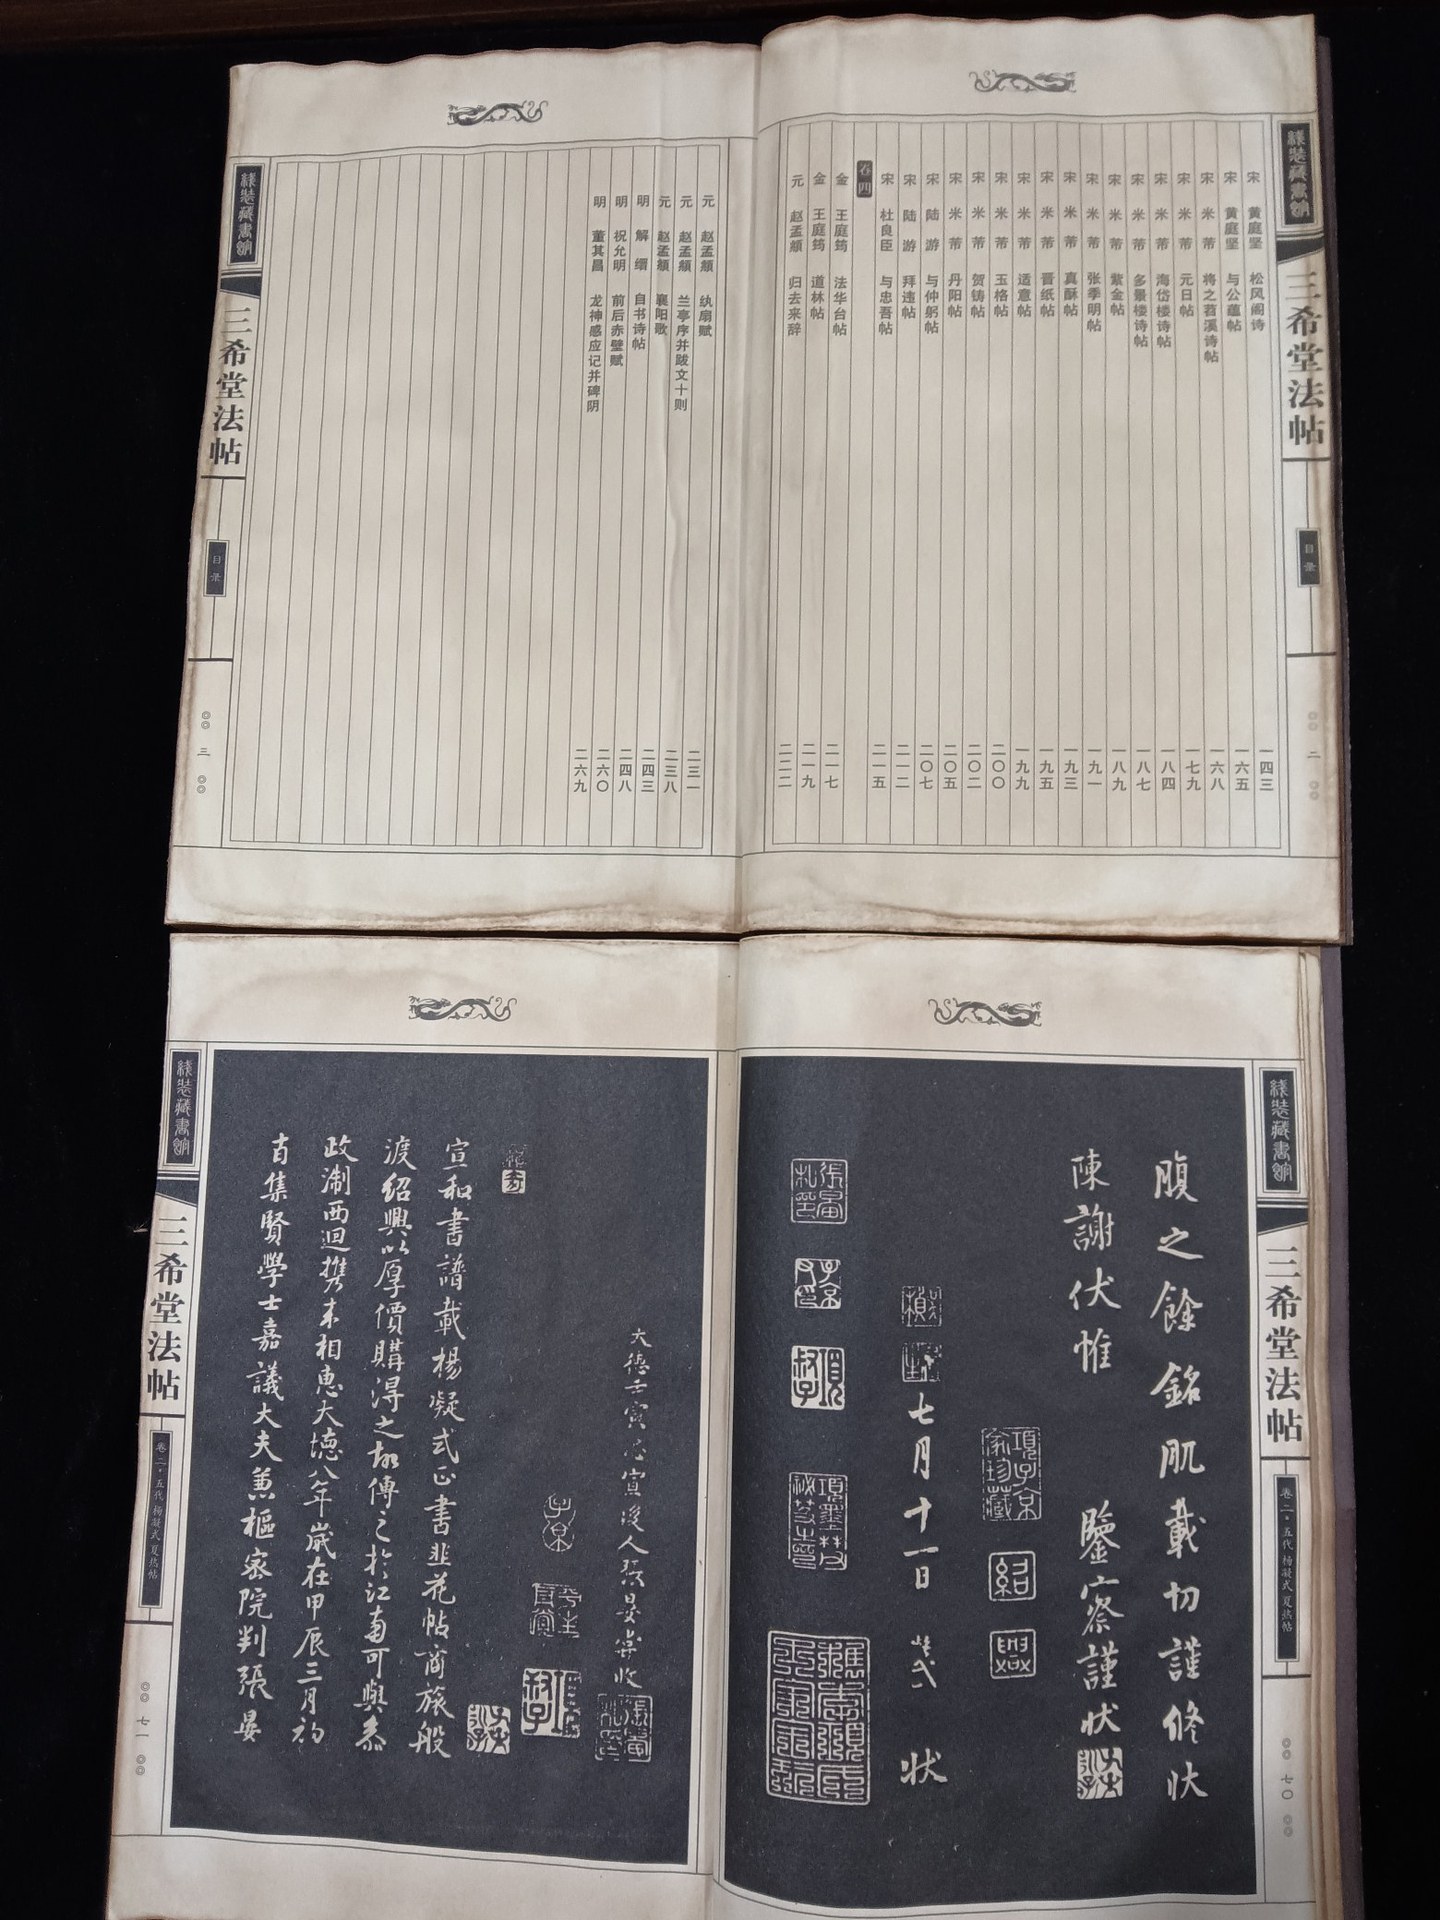 线装藏书馆
三希堂法帖
目录
宋 黄庭坚 松风阁诗 一四三
宋 黄庭坚 与公蕴帖 一六五
宋 米芾 将之苕溪诗帖 一六八
宋 米芾 元日帖 一七九
宋 米芾 海岱楼诗帖 一八四
宋 米芾 多景楼诗帖 一八七
宋 米芾 紫金帖 一八九
宋 米芾 张季明帖 一九一
宋 米芾 真酥帖 一九三
宋 米芾 晋纸帖 一九五
宋 米芾 适意帖 一九九
宋 米芾 玉格帖 二〇〇
宋 米芾 贺铸帖 二〇二
宋 米芾 丹阳帖 二〇五
宋 陆游 与仲躬帖 二〇七
宋 陆游 拜违帖 二一二
宋 杜良臣 与忠吾帖 二一五
卷四
金 王庭筠 法华台帖 二一七
金 王庭筠 道林帖 二一九
元 赵孟頫 归去来辞 二二二
元 赵孟頫 纨扇赋 二三一
元 赵孟頫 兰亭序并跋文十则 二三八
元 赵孟頫 襄阳歌 二四三
明 解缙 自书诗帖 二四八
明 祝允明 前后赤壁赋 二六〇
明 董其昌 龙神感应记并碑阴 二六九
线装藏书馆
三希堂法帖
目录
三
线装藏书馆
三希堂法帖
卷二·五代 杨凝式 夏热帖
七〇
腹之餘銘肌載切謹修狀
陳謝伏惟 鑒察謹狀
項子京家珍藏
紹
興
七月十一日 狀
張晏私印
項墨林父祕笈之印
大德壬寅 宣後人張晏 收
宣和書譜載楊凝式正書韭花帖商旅般
渡紹興以厚價購得之故傳之於江南可與黍
政淛西迴携來相惠大德八年歲在甲辰三月初
吉集賢學士嘉議大夫兼樞密院判張晏
线装藏书馆
三希堂法帖
卷二·五代 杨凝式 夏热帖
七一